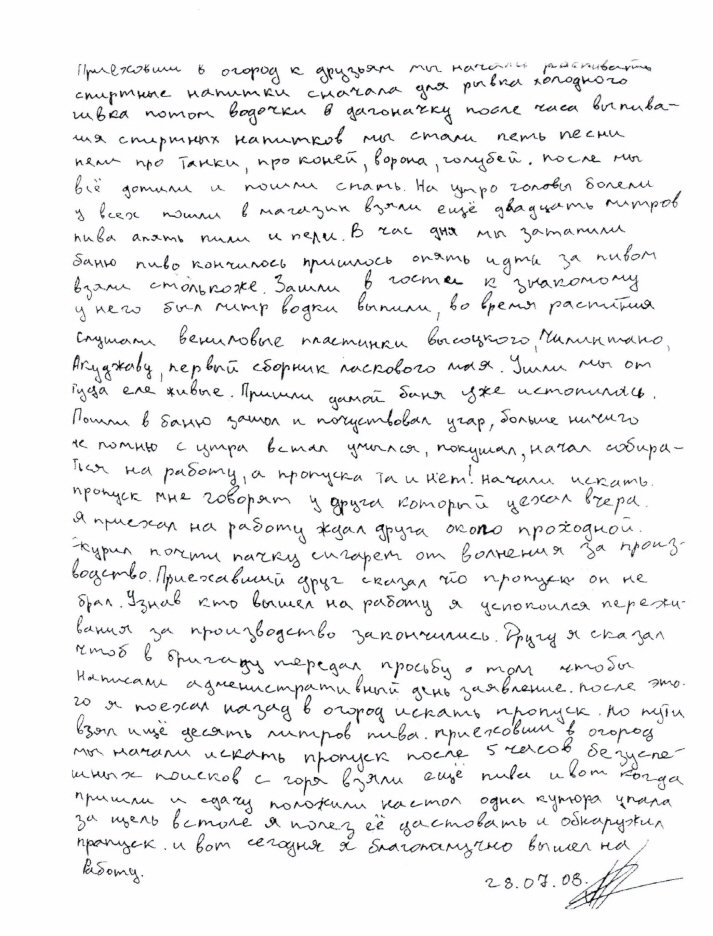 Приехавши в огород к друзьям мы начали распивать
спиртные напитки сначала для рывка холодного
пивка потом водочки в дагоначку после часа выпива-
ния спиртных напитков мы стали петь песни
пели про танки, про коней, ворона, голубей. после мы
всё допили и пошли спать. На утро головы болели
у всех пошли в магазин взяли ещё двадцать литров
пива апять пили и пели. В час дня мы затапили
баню пиво кончилось пришлось опять идти за пивом
взяли столькоже. Зашли в гости к знакомому
у него был литр водки выпили, во время распития
слушали вениловые пластинки высоцкого, Чилинтано,
Акуджаву, первый сборник ласкового мая. Ушли мы от
туда еле живые. Пришли дамой баня уже истопилась.
Пошли в баню зашол и почуствовал угар, больше ничиго
не помню с утра встал умылся, покушал, начал собира-
ться на работу, а пропуска та и нет! начали искать.
пропуск мне говорят у друга который уехал вчера.
я приехал на работу ждал друга около проходной.
курил почти пачку сигарет от волнения за произ-
водство. Приехавший друг сказал что пропуск он не
брал. Узнав кто вышел на работу я успокоился пережи-
вания за производство закончились. Другу я сказал
чтоб в бригаду передал просьбу о том чтобы
написали административный день заявление. после это-
го я поехал назад в огород искать пропуск. по пути
взял ищё десять литров пива. приехавши в огород
мы начали искать пропуск после 5 часов безуспе-
шных поисков с горя взяли ещё пива и вот когда
пришли и сдачу положили на стол одна купюра упала
за щель в столе я полез её даставать и обнаружил
прапуск. и вот сегодня я благопалучно вышел на
Работу.
28.07.08.